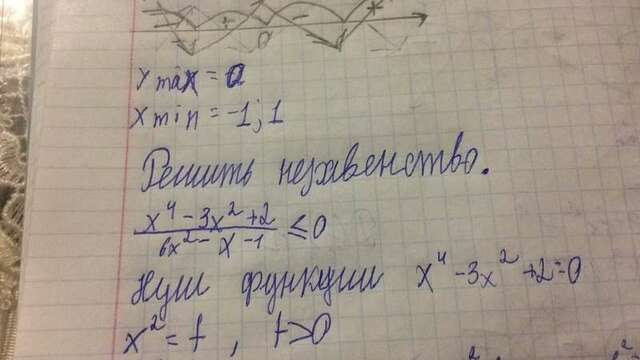 + 0 - +
x max = 0
x min = -1; 1
Решить неравенство.
x⁴ - 3x² + 2
6x² - x - 1
≤ 0
Нули функции x⁴ - 3x² + 2 = 0
x² = t, t > 0